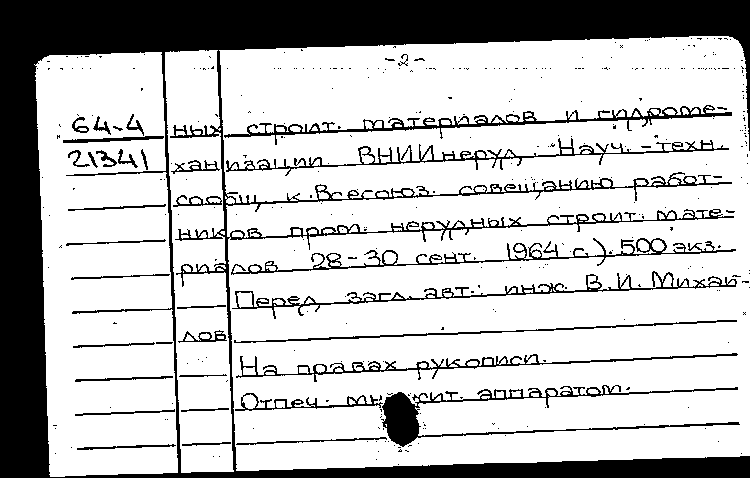 -2-
64-4 ных строит. материалов и гидроме-
21341 ханизации ВНИИнеруд. Науч.-техн.
сообщ. к Всесоюз. совещанию работ-
ников пром. нерудных строит. мате-
риалов 28-30 сент. 1964 г.). 500 экз.
Перед загл. авт.: инж. В.И. Михай-
лов
На правах рукописи.
Отпеч. множит. аппаратом.